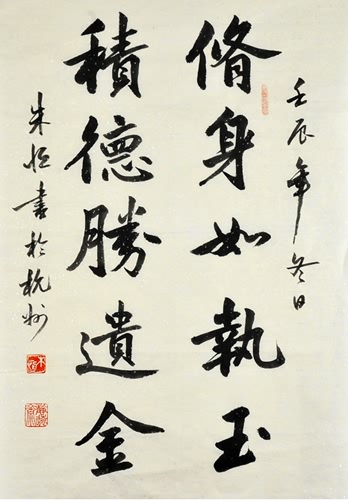 壬辰年冬日
脩身如執玉
積德勝遺金
朱恒書於杭州